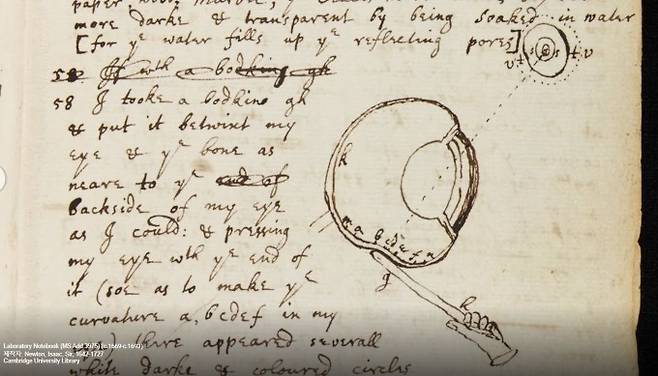 paper, wood, marble,
more darke & transparent by being soaked in water
[for yᵉ water fills up yᵉ reflecting pores]
58 If wth a bodking gh
58 I tooke a bodkine gh
& put it betwixt my
eye & yᵉ bone as
neare to yᵉ end of
backside of my eye
as I could: & pressing
my eye wth yᵉ end of
it (soe as to make yᵉ
curvature a, bcdef in my
there appeared severall
white darke & coloured circles
k
m a b c d e f n
g
h
r s s t v
Laboratory Notebook (MS Add.3975) (c.1669-c.1693)
제작자: Newton, Isaac, Sir, 1642-1727
Cambridge University Library